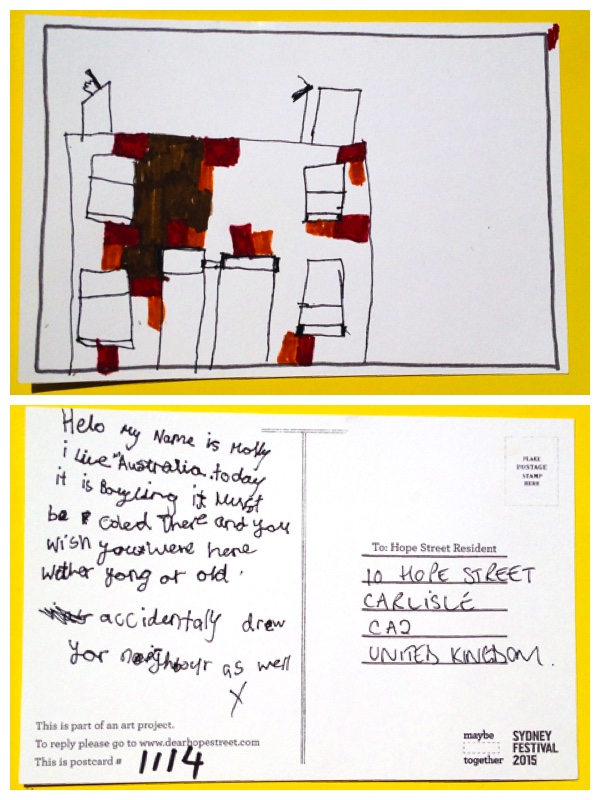 Helo my Name is Molly
i live Australia.today
it is Boyling it Must
be coled There and you
wish you were here
wether yong or old .
accidentaly drew
your neighbour as well
X
This is part of an art project.
To reply please go to www.dearhopestreet.com
This is postcard # 1114
PLACE
POSTAGE
STAMP
HERE
To: Hope Street Resident
10 HOPE STREET
CARLISLE
CA2
UNITED KINGDOM.
maybe
together
SYDNEY
FESTIVAL
2015